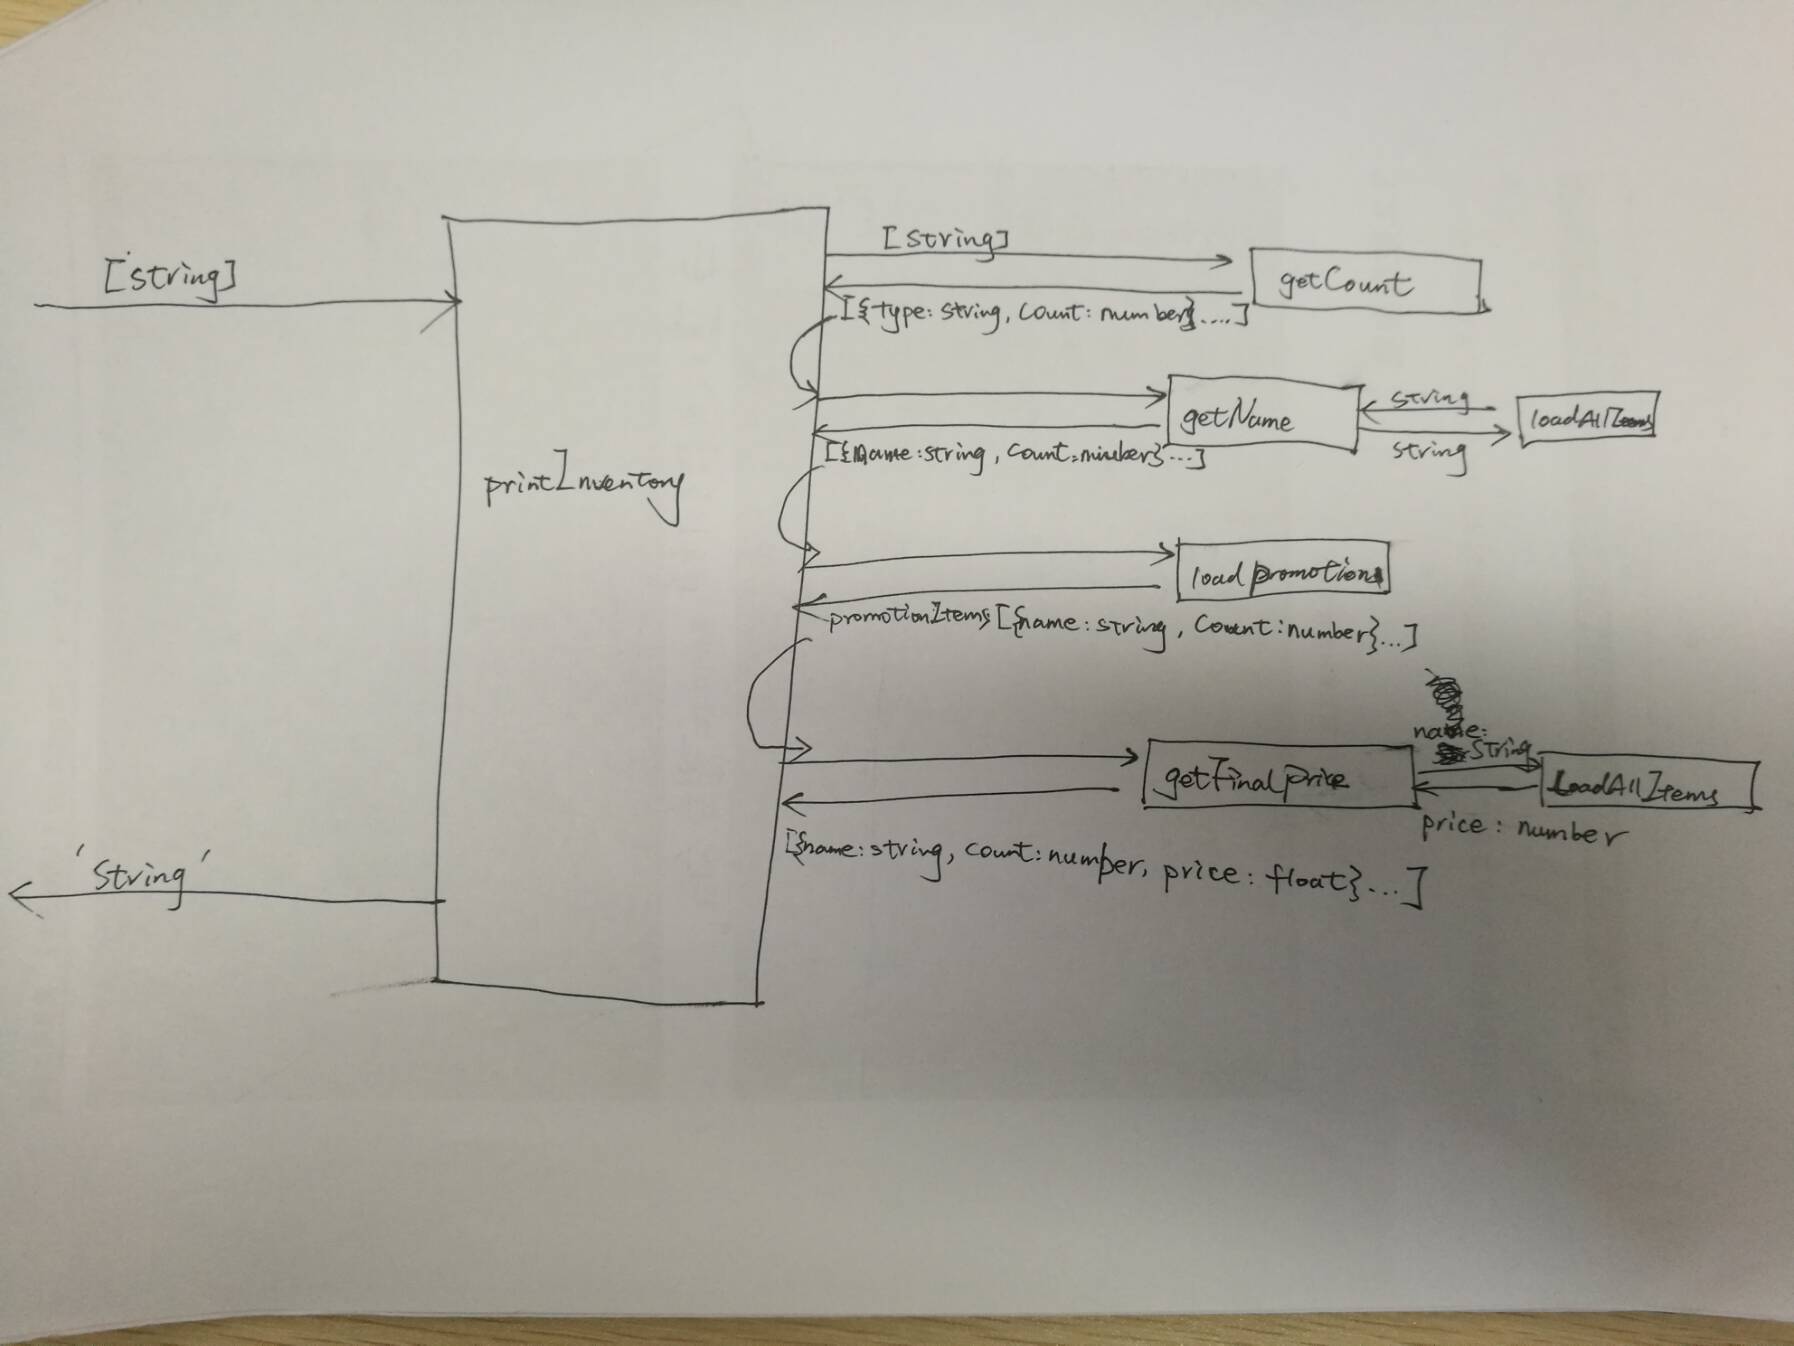 [string]
printInventory
'String'
[string]
getCount
[{type: string, count: number}....]
getName
string
string
loadAllItems
[{name: string, count: number}...]
loadpromotions
promotionItems[{name: string, count: number}...]
getFinalprice
name:
string
LoadAllItems
price: number
[{name: string, count: number, price: float}...]